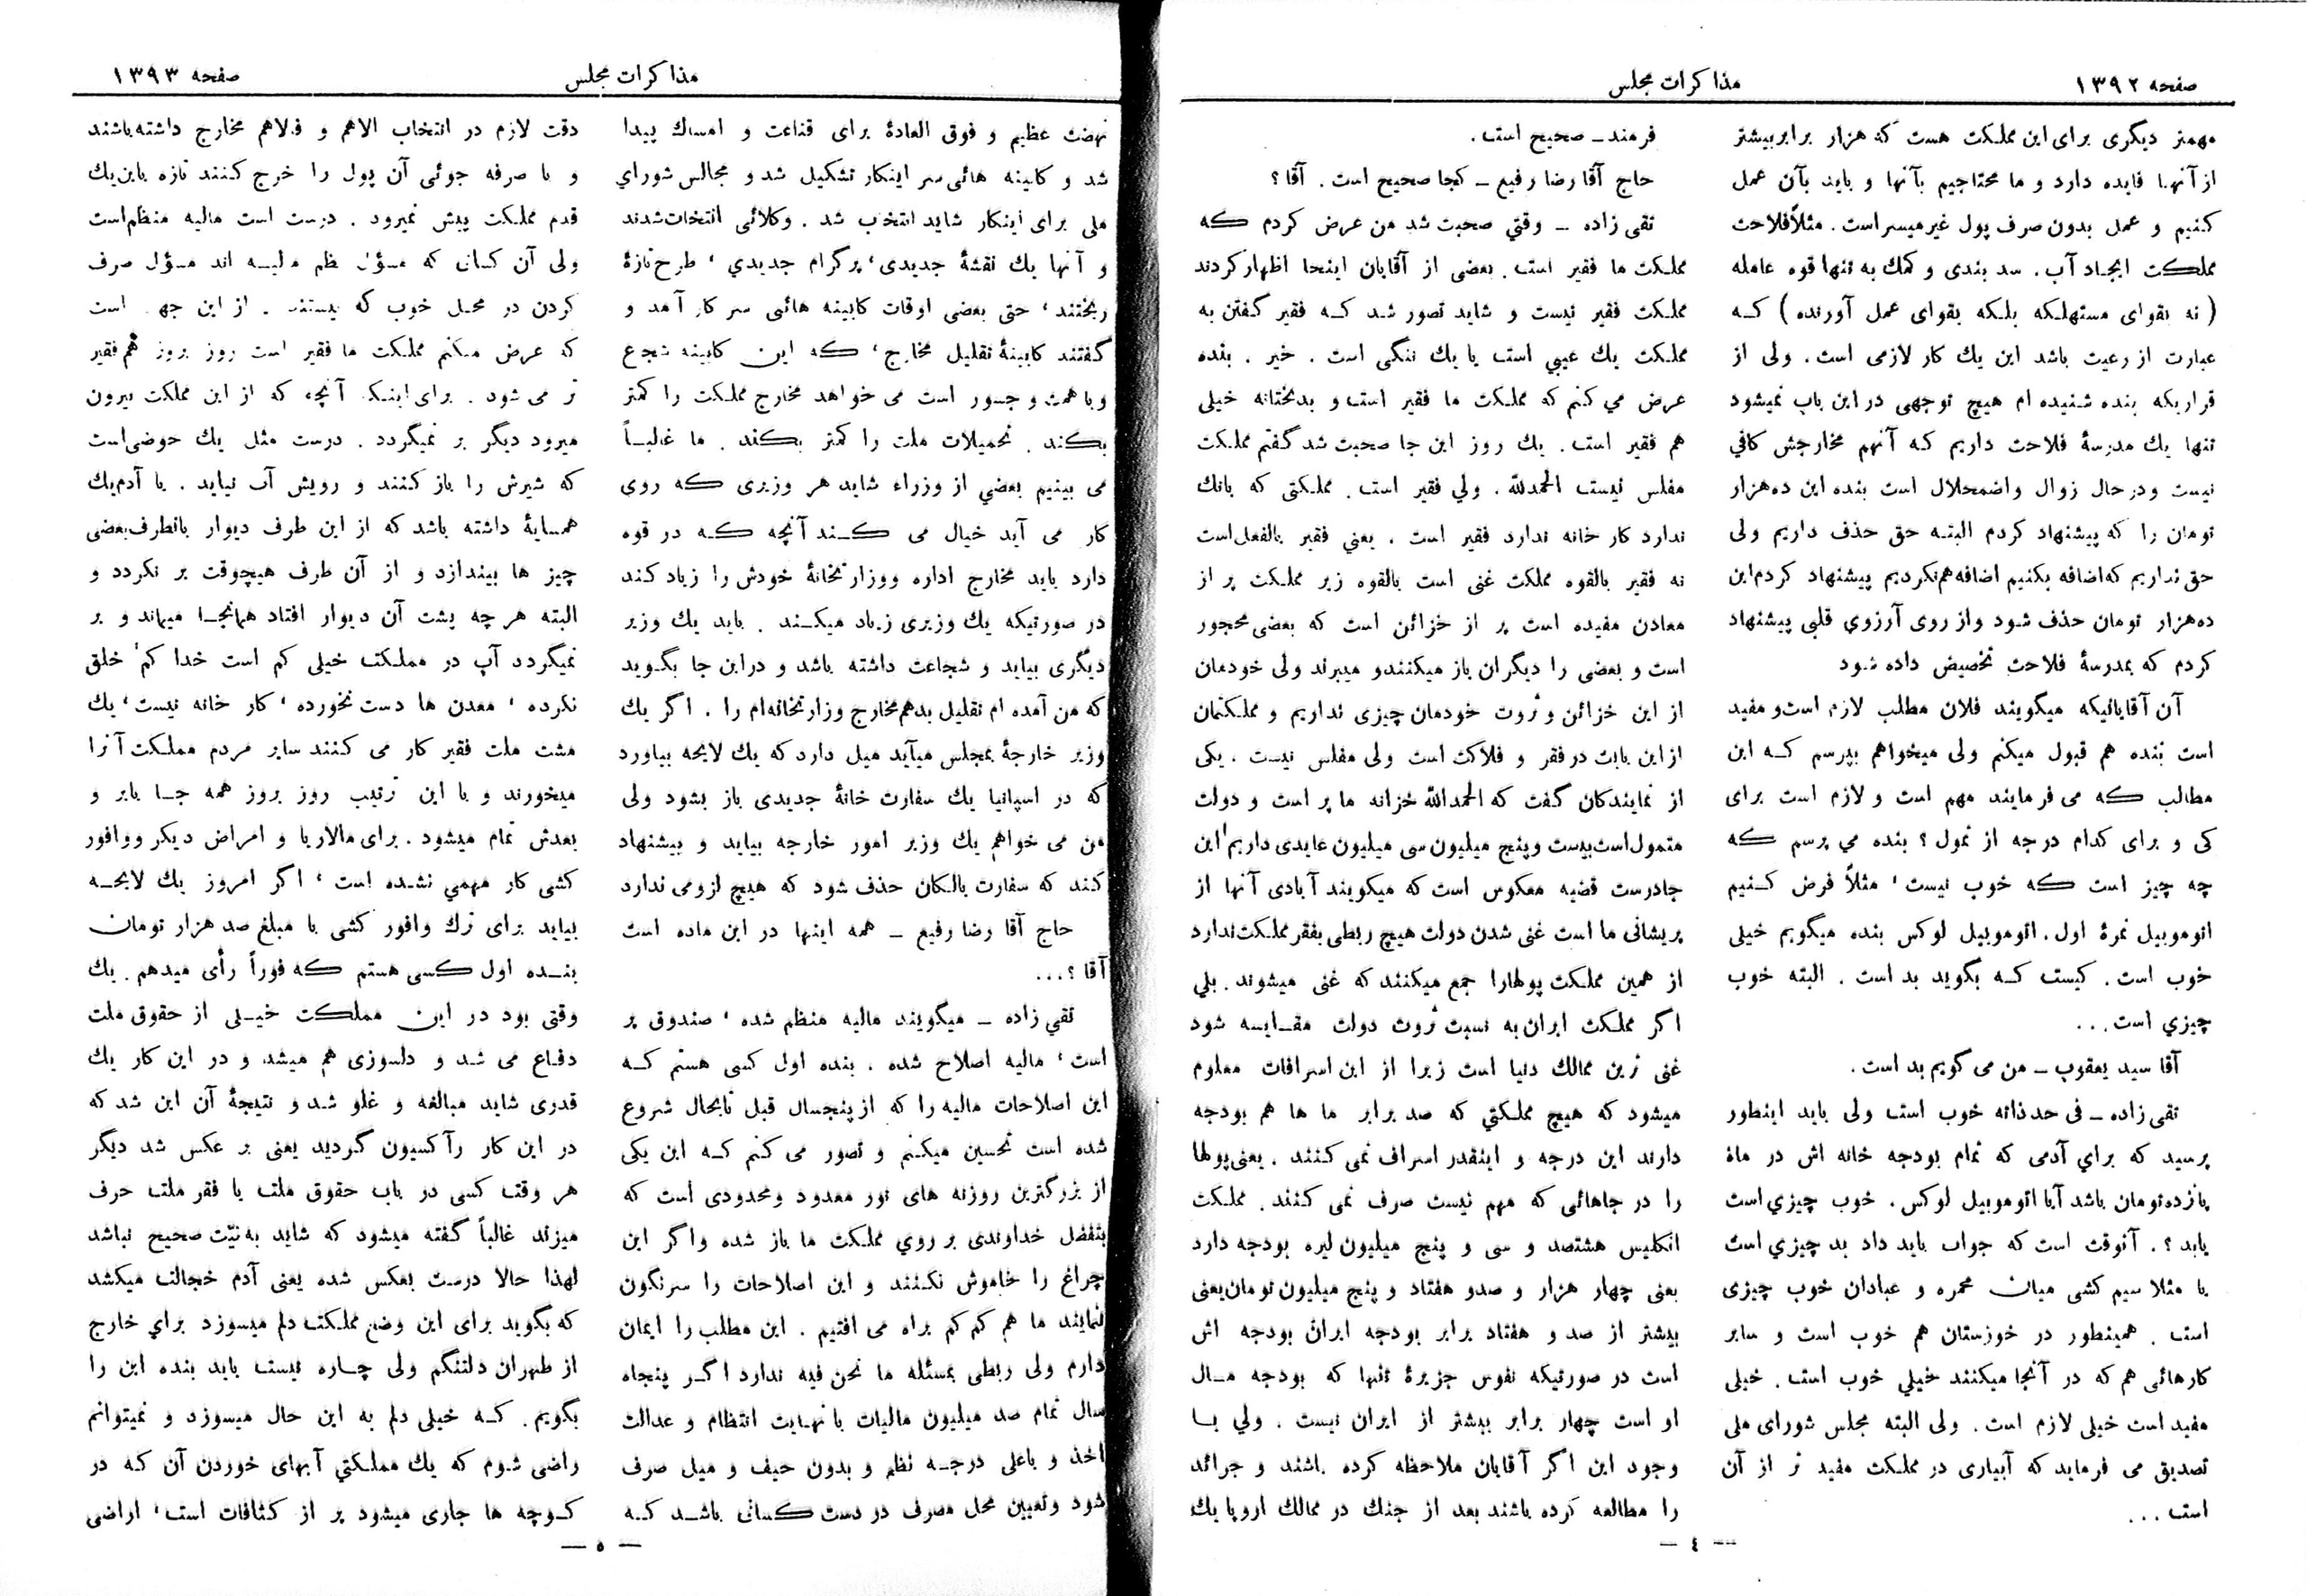 صفحه ۱۳۹۲
مذاکرات مجلس
مهمتر دیگری برای این مملکت هست که هزار برابر بیشتر
از آنها فایده دارد و ما محتاجیم بآنها و باید بآن عمل
کنیم و عمل بدون صرف پول غیر میسر است. مثلاً فلاحت
مملکت ایجاد آب. سد بندی و کمك به تنها قوه عامله
(نه بقوای مستهلکه بلکه بقوای عمل آورنده) که
عبارت از رعیت باشد این یك کار لازمی است. ولی از
قراریکه بنده شنیده ام هیچ توجهی در این باب نمیشود
تنها یك مدرسهٔ فلاحت داریم که آنهم مخارجش کافی
نیست و در حال زوال واضمحلال است بنده این ده هزار
تومان را که پیشنهاد کردم البته حق حذف داریم ولی
حق نداریم که اضافه بکنیم اضافه هم نکردیم پیشنهاد کردم این
ده هزار تومان حذف شود و از روی آرزوی قلبی پیشنهاد
کردم که بمدرسهٔ فلاحت تخصیص داده شود
آن آقایانیکه میگویند فلان مطلب لازم است و مفید
است بنده هم قبول میکنم ولی میخواهم بپرسم که این
مطالب که می فرمایند مهم است و لازم است برای
کی و برای کدام درجه از تمول؟ بنده می پرسم که
چه چیز است که خوب نیست، مثلاً فرض کنیم
اتوموبیل نمرهٔ اول. اتوموبیل لوکس بنده میگویم خیلی
خوب است. کیست که بگوید بد است. البته خوب
چیزی است...
آقا سید یعقوب ـ من می گویم بد است.
تقی زاده ـ فی حد ذاته خوب است ولی باید اینطور
پرسید که برای آدمی که تمام بودجه خانه اش در ماه
پانزده تومان باشد آیا اتوموبیل لوکس. خوب چیزی است
یابد؟. آنوقت است که جواب باید داد بد چیزی است
یا مثلا سیم کشی میان محمره و عبادان خوب چیزی
است. همینطور در خوزستان هم خوب است و سایر
کارهائی هم که در آنجا میکنند خیلی خوب است. خیلی
مفید است خیلی لازم است. ولی البته مجلس شورای ملی
تصدیق می فرماید که آبیاری در مملکت مفید تر از آن
است...
فرمند ـ صحیح است.
حاج آقا رضا رفیع ـ کجا صحیح است. آقا؟
تقی زاده ـ وقتی صحبت شد من عرض کردم که
مملکت ما فقیر است. بعضی از آقایان اینجا اظهار کردند
مملکت فقیر نیست و شاید تصور شد که فقیر گفتن به
مملکت یك عیبی است یا یك ننگی است. خیر. بنده
عرض می کنم که مملکت ما فقیر است و بدبختانه خیلی
هم فقیر است. یك روز این جا صحبت شد گفتم مملکت
مفلس نیست الحمدلله. ولی فقیر است. مملکتی که بانك
ندارد کار خانه ندارد فقیر است. یعنی فقیر بالفعل است
نه فقیر بالقوه مملکت غنی است بالقوه زیر مملکت پر از
معادن مفیده است پر از خزائن است که بعضی محجور
است و بعضی را دیگران باز میکنند و میبرند ولی خودمان
از این خزائن و ثروت خودمان چیزی نداریم و مملکتمان
از این بابت در فقر و فلاکت است ولی مفلس نیست. یکی
از نمایندگان گفت که الحمدالله خزانه ما پر است و دولت
متمول است بیست و پنج میلیون سی میلیون عایدی داریم، این
جا درست قضیه معکوس است که میگویند آبادی آنها از
پریشانی ما است غنی شدن دولت هیچ ربطی بفقر مملکت ندارد
از همین مملکت پولها را جمع میکنند که غنی میشوند. بلی
اگر مملکت ایران به نسبت ثروت دولت مقایسه شود
غنی ترین ممالك دنیا است زیرا از این اسرافات معلوم
میشود که هیچ مملکتی که صد برابر ما ها هم بودجه
دارند این درجه و اینقدر اسراف نمی کنند. یعنی پولها
را در جاهائی که مهم نیست صرف نمی کنند. مملکت
انگلیس هشتصد و سی و پنج میلیون لیره بودجه دارد
یعنی چهار هزار و صدو هفتاد و پنج میلیون تومان یعنی
بیشتر از صد و هفتاد برابر بودجه ایران بودجه اش
است در صورتیکه نفوس جزیرهٔ تنها که بودجه مال
او است چهار برابر بیشتر از ایران نیست. ولی با
وجود این اگر آقایان ملاحظه کرده باشند و جرائد
را مطالعه کرده باشند بعد از جنك در ممالك اروپا یك
— ٤ —
مذاکرات مجلس
صفحه ۱۳۹۳
نهضت عظیم و فوق العادهٔ برای قناعت و امساك پیدا
شد و کابینه هائی سر اینکار تشکیل شد و مجالس شورای
ملی برای اینکار شاید انتخب شد. وکلائی انتخاب شدند
و آنها یك نقشهٔ جدیدی، پرگرام جدیدی، طرح تازهٔ
ریختند، حتی بعضی اوقات کابینه هائی سر کار آمد و
گفتند کابینهٔ تقلیل مخارج، که این کابینه شجاع
وبا همت و جسور است می خواهد مخارج مملکت را کمتر
بکند. تحمیلات ملت را کمتر بکند. ما غالباً
می بینیم بعضی از وزراء شاید هر وزیری که روی
کار می آید خیال می کند آنچه که در قوه
دارد باید مخارج اداره ووزارتخانهٔ خودش را زیاد کند
در صورتیکه یك وزیری زیاد میکند. باید یك وزیر
دیگری بیاید و شجاعت داشته باشد و در این جا بگوید
که من آمده ام تقلیل بدهم مخارج وزارتخانه ام را. اگر یك
وزیر خارجهٔ بمجلس میآید میل دارد که یك لایحه بیاورد
که در اسپانیا یك سفارت خانهٔ جدیدی باز بشود ولی
من می خواهم یك وزیر امور خارجه بیاید و پیشنهاد
کند که سفارت بالکان حذف شود که هیچ لزومی ندارد
حاج آقا رضا رفیع ـ همه اینها در این ماده است
آقا؟...
تقی زاده ـ میگویند مالیه منظم شده، صندوق پر
است، مالیه اصلاح شده. بنده اول کسی هستم که
این اصلاحات مالیه را که از پنجسال قبل تابحال شروع
شده است تحسین میکنم و تصور می کنم که این یکی
از بزرگترین روزنه های نور معدود ومحدودی است که
بتفضل خداوندی بر روی مملکت ما باز شده واگر این
چراغ را خاموش نکنند و این اصلاحات را سرنگون
ننمایند ما هم کم کم براه می افتیم. این مطلب را ایمان
دارم ولی ربطی بمسئله ما نحن فیه ندارد اگر پنجاه
سال تمام صد میلیون مالیات با نهایت انتظام و عدالت
اخذ و باعلی درجه نظم و بدون حیف و میل صرف
شود وتعیین محل مصرف در دست کسانی باشد که
دقت لازم در انتخاب الاهم و فالاهم مخارج داشته باشند
و با صرفه جوئی آن پول را خرج کنند تازه باین یك
قدم مملکت پیش نمیرود. درست است مالیه منظم است
ولی آن کسانی که مسؤل نظم مالیه اند مسؤل صرف
کردن در محل خوب که نیستند. از این جهت است
که عرض میکنم مملکت ما فقیر است روز بروز هم فقیر
تر می شود. برای اینکه آنچه که از این مملکت بیرون
میرود دیگر بر نمیگردد. درست مثل یك حوضی است
که شیرش را باز کنند و رویش آب نیاید. یا آدم یك
همسایهٔ داشته باشد که از این طرف دیوار بانطرف بعضی
چیز ها بیندازد و از آن طرف هیچوقت بر نگردد و
البته هر چه پشت آن دیوار افتاد همانجا میماند و بر
نمیگردد آب در مملکت خیلی کم است خدا کم خلق
نکرده، معدن ها دست نخورده، کار خانه نیست، یك
مشت ملت فقیر کار می کنند سایر مردم مملکت آنرا
میخورند و با این ترتیب روز بروز همه جا بایر و
بعدش تمام میشود. برای مالاریا و امراض دیگر ووافور
کشی کار مهمی نشده است، اگر امروز یك لایحه
بیاید برای ترك وافور کشی با مبلغ صد هزار تومان
بنده اول کسی هستم که فوراً رأی میدهم. یك
وقتی بود در این مملکت خیلی از حقوق ملت
دفاع می شد و دلسوزی هم میشد و در این کار یك
قدری شاید مبالغه و غلو شد و نتیجهٔ آن این شد که
در این کار رآکسیون گردید یعنی بر عکس شد دیگر
هر وقت کسی در باب حقوق ملت یا فقر ملت حرف
میزند غالباً گفته میشود که شاید به نیّت صحیح نباشد
لهذا حالا درست بعکس شده یعنی آدم خجالت میکشد
که بگوید برای این وضع مملکت دلم میسوزد برای خارج
از طهران دلتنگم ولی چاره نیست باید بنده این را
بگویم. که خیلی دلم به این حال میسوزد و نمیتوانم
راضی شوم که یك مملکتی آبهای خوردن آن که در
کوچه ها جاری میشود پر از کثافات است، اراضی
— ٥ —